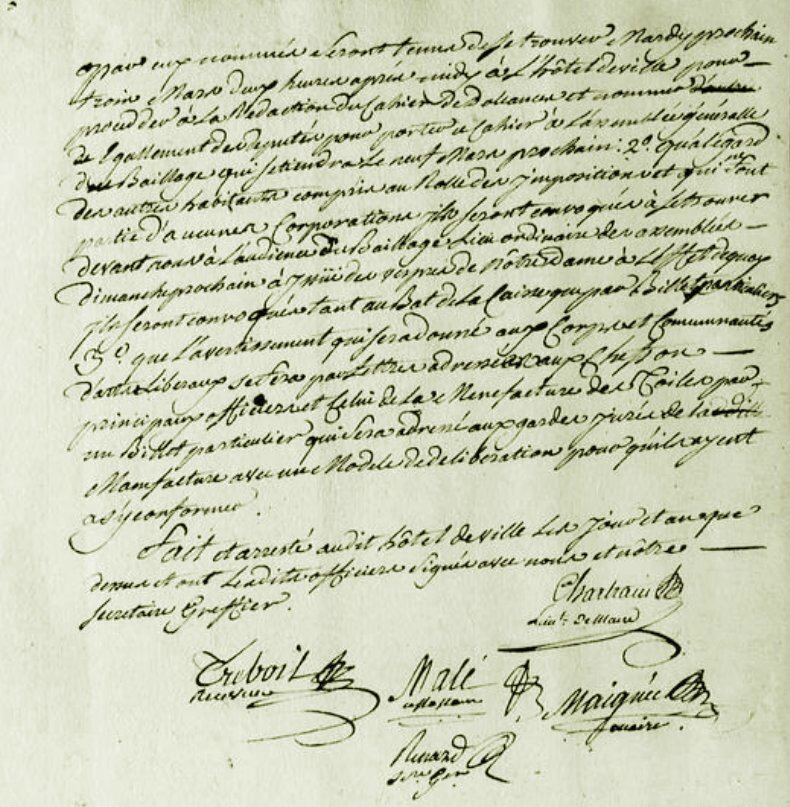 par eux nommés seront tenus de se trouver Mardy prochain
trois Mars deux heures après midy à L'hôtel de ville pour
procéder à La Rédaction du Cahier de Doléances et nommer d'autre
de Egallement des députés pour porter ce Cahier à L'assemblée générale
du Baillage qui se tiendra Le neuf Mars prochain: 2º. qu'à légard
des autres habitants compris au Rolle des Impositions et qui ne font
partie d'aucunes Corporations ils seront convoqués à se trouver
devant nous à L'audience du Baillage Lieu ordinaire des assemblées
Dimanche prochain à issüe des vespres de Nôtre dame à L'effet de quoy
ils seront convoqués tant au Bat de La Caisse que par Billet particuliers
3º. que L'avertissement qui sera donné aux Corps et Communautés
d'arts Liberaux se fera par Lettres adressées aux Chefs ou
principaux officiers et Celui de La Menefacture des Toiles par
un Billet particulier qui sera adressé aux gardes jurés de ladite
Manufacture avec un Modele de deliberation pour qu'ils ayent
a s'y conformer.
Fait et arresté audit hôtel de ville Les jour et an que
dessus et ont Lesdits officiers signés avec nous et nôtre
Secretaire Greffier.
Lieut. de Maire
Treboil
Receveur
Malé
Maignée
maire
Renard